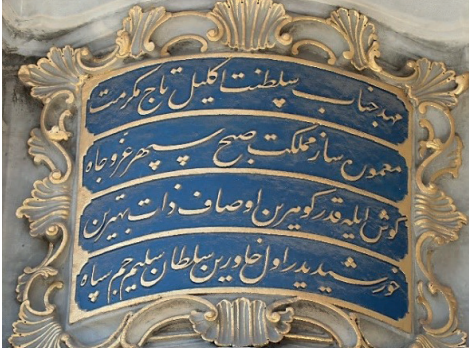 مهد جناب سلطنت اكليل تاج مكرمت
معموره ساز مملكت صبح سپهر عز و جاه
گوش ايله قدر گوهرين اوصاف ذات بهترين
خورشيددر اول خاورين سلطان سليم جم سپاه